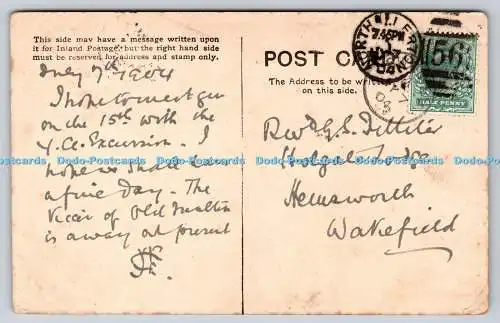 This side may have a message written upon
it for Inland Postage, but the right hand side
must be reserved for address and stamp only.
July 7th 1904
I hope to meet you
on the 15th with the
Excursion. I
hope we shall have
a fine day. The
Vicar of Old Malton
is away at present
POST CA
The Address to be wri
on this side.
Revd G.S.
Hemsworth
Wakefield
7.45PM
JY 7
04
156
HALF PENNY
Dodo-Postcards Dodo-Postcards Dodo-Postcards Dodo-Postcards Dodo-Postcards